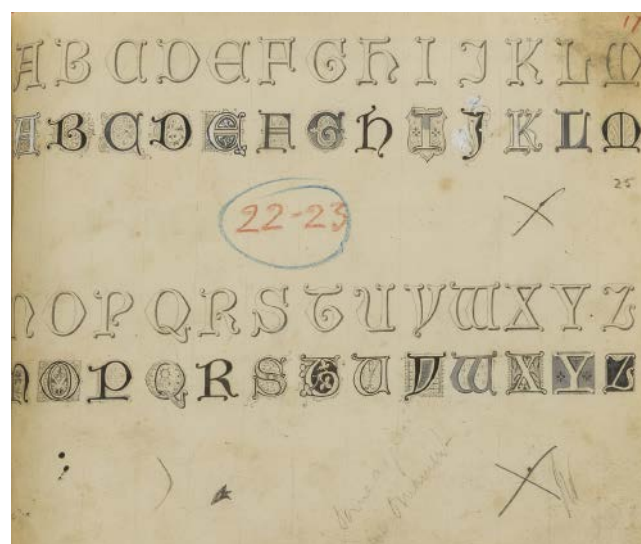 17
A B C D E F G H I J K L M
A B C D E F G H I J K L M
25
22-23
N O P Q R S T U V W X Y Z
N O P Q R S T U V W X Y Z